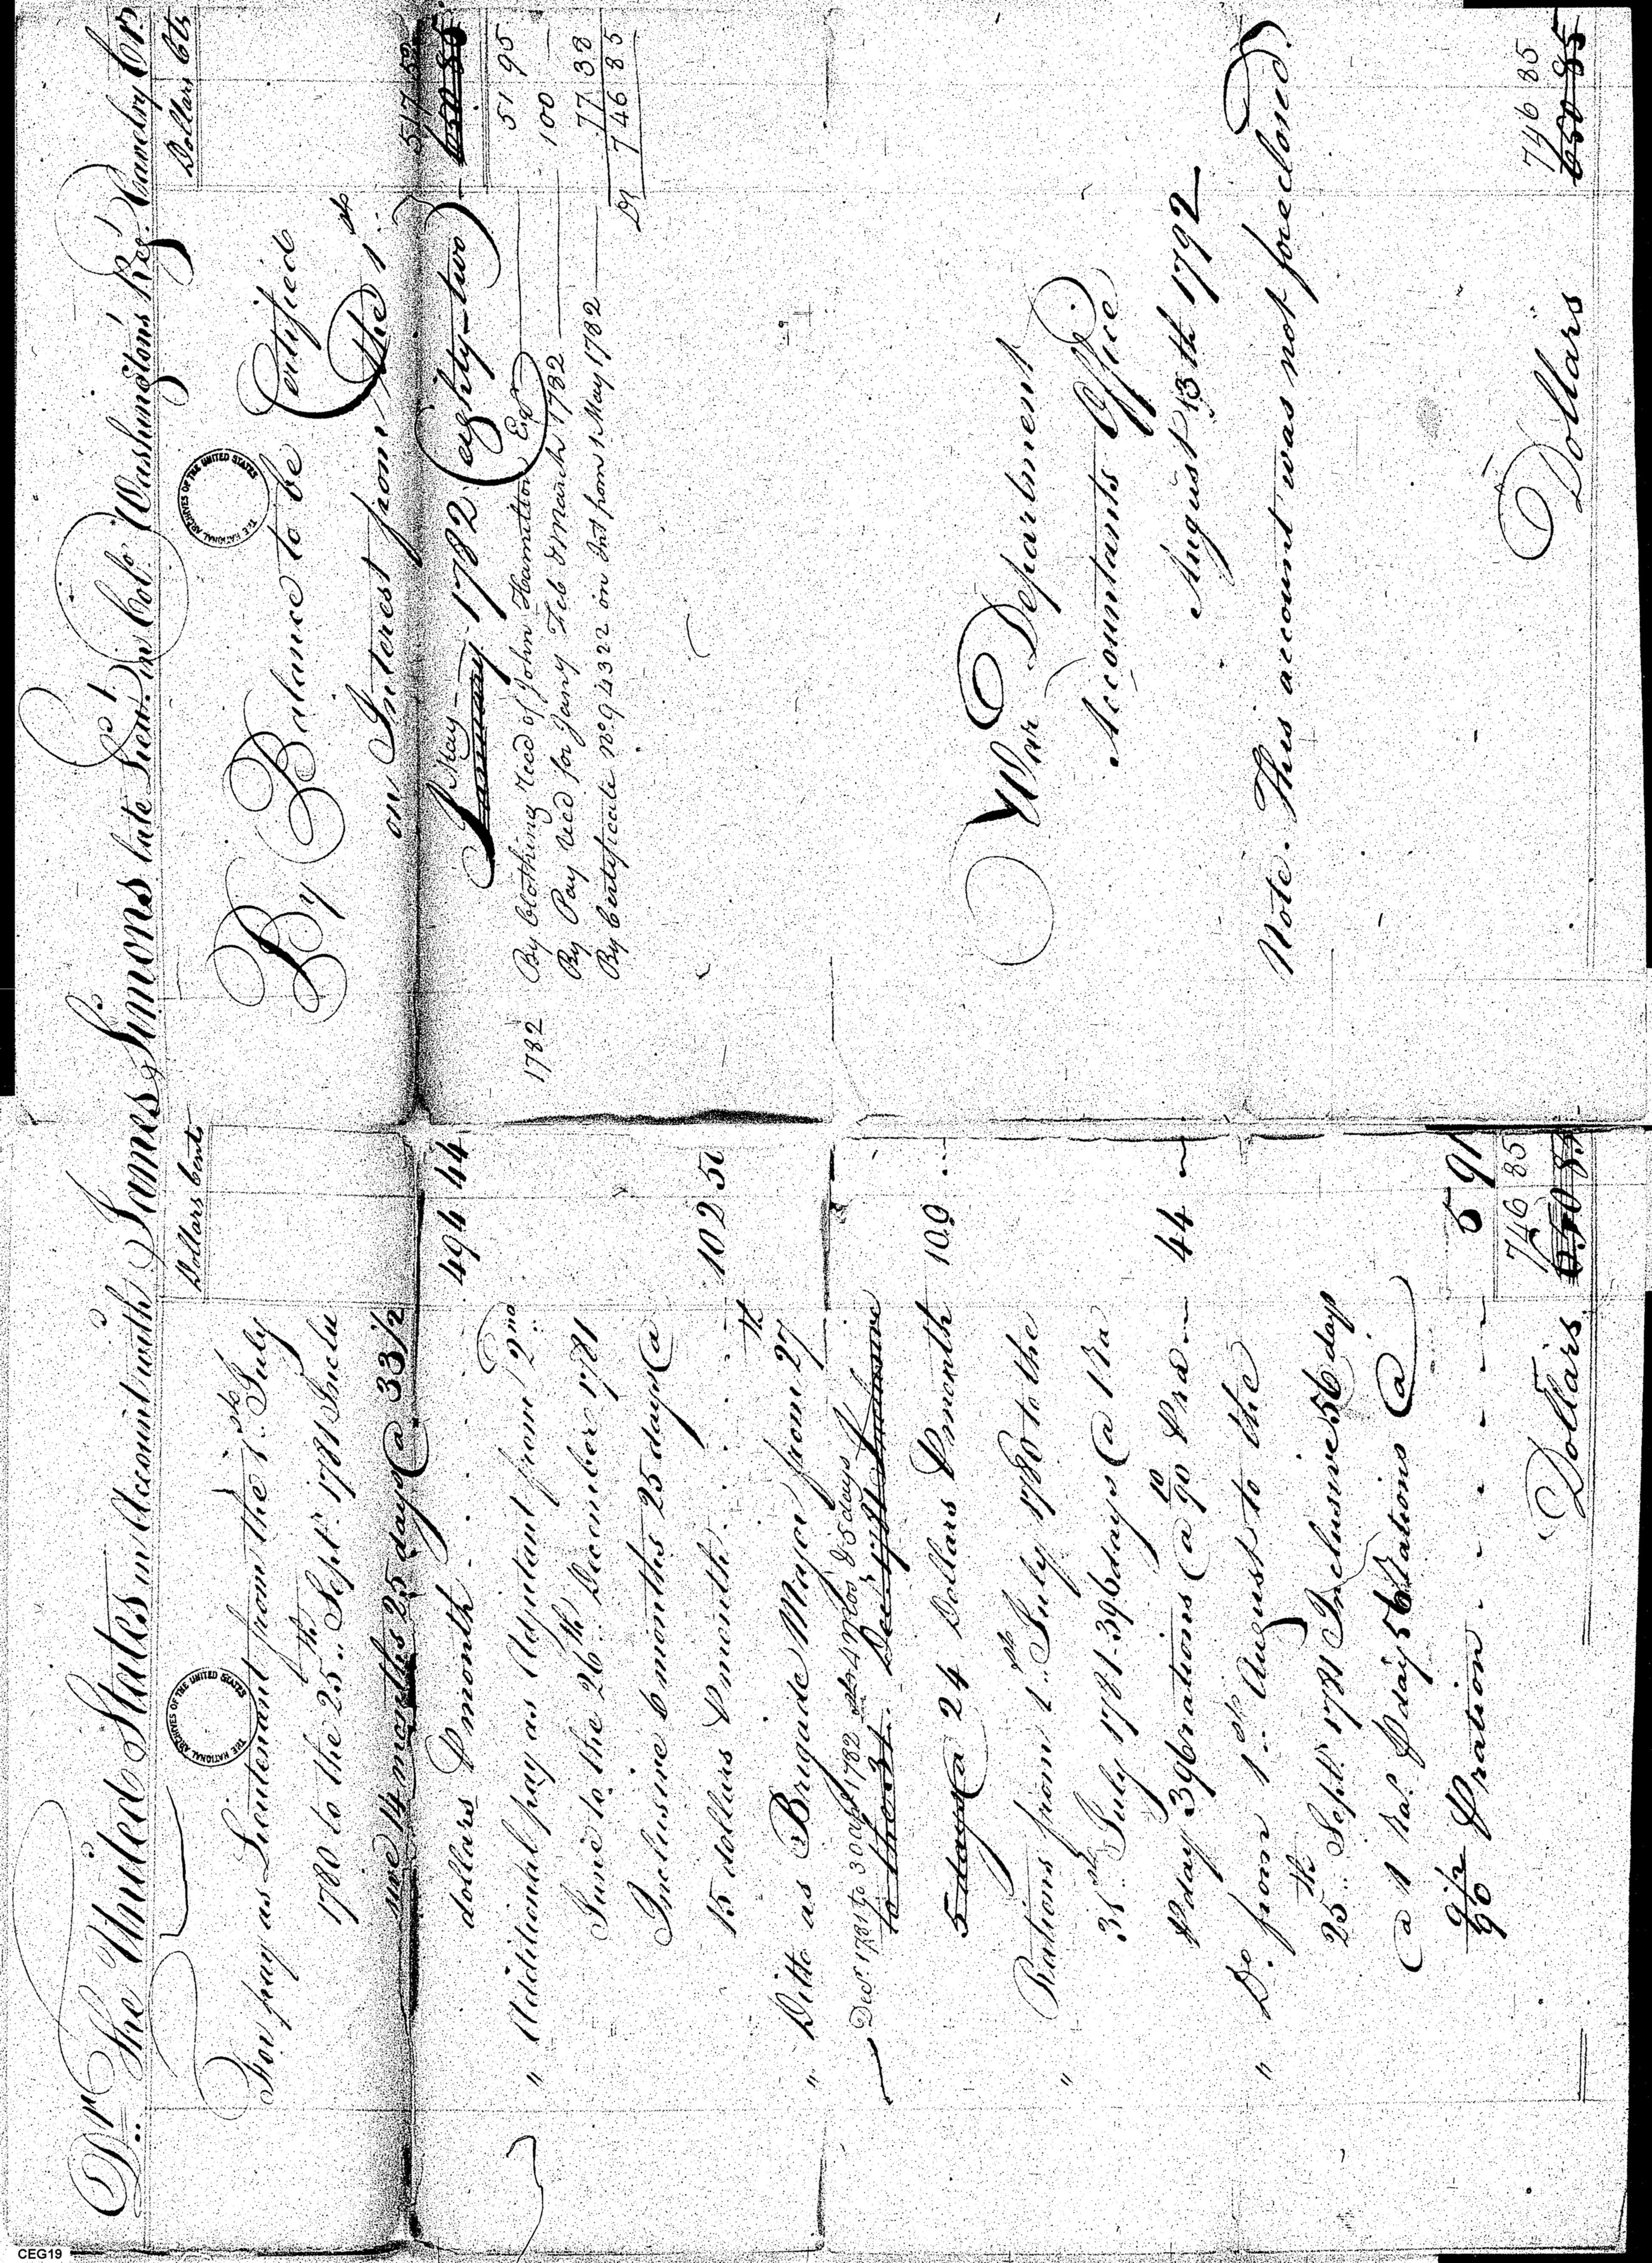 Dr. The United States in Account with James Simons late Lieut. in Colo. Washington's Reg. Cavalry Cr.
Dollars Cents
For pay as Lieutenant from the 1st July
1780 to the 25th Sept. 1781 Inclu
sive 14 months 25 days @ 33 1/2
dollars P month . . . 494 44
" Additional pay as Adjutant from 2nd
June to the 26th December 1781
Inclusive 6 months 25 days @
15 dollars P month . . . . 102 50
" Ditto as Brigade Major from 27th
Decr 1781 to 30 April 1782 is 4 mos & 5 days
to the 31. Decr 1781 Inclusive
5 days @ 24 Dollars P month 109
" Rations from 1st July 1780 to the
31st July 1781 396 days @ 1 Ra
P day 396 rations @ 10/90 P ra 44
" Do. from 1st August to the
25th Sept. 1781 Inclusive 56 days
@ 1 Ra. P day 56 Rations @
9 1/2/90 P ration - - - - - 5 91
746 85
Dollars 650 85
Dollars Cts
By Balance to be Certified
on Interest from the 1st
517 52
May
January 1782 (eighty-two) 650 85
1782 By Clothing recd of John Hamilton Esqr 51 95
By Pay recd for Jany Feb & March 1782 100
By Certificate No. 94322 on Int from 1 May 1782 77 38
Ds 746 85
War Department
Accountants Office
August 13th 1792
Note. This account was not foreclosed.
746 85
Dollars 650 85
THE NATIONAL ARCHIVES OF THE UNITED STATES
THE NATIONAL ARCHIVES OF THE UNITED STATES
CEG19